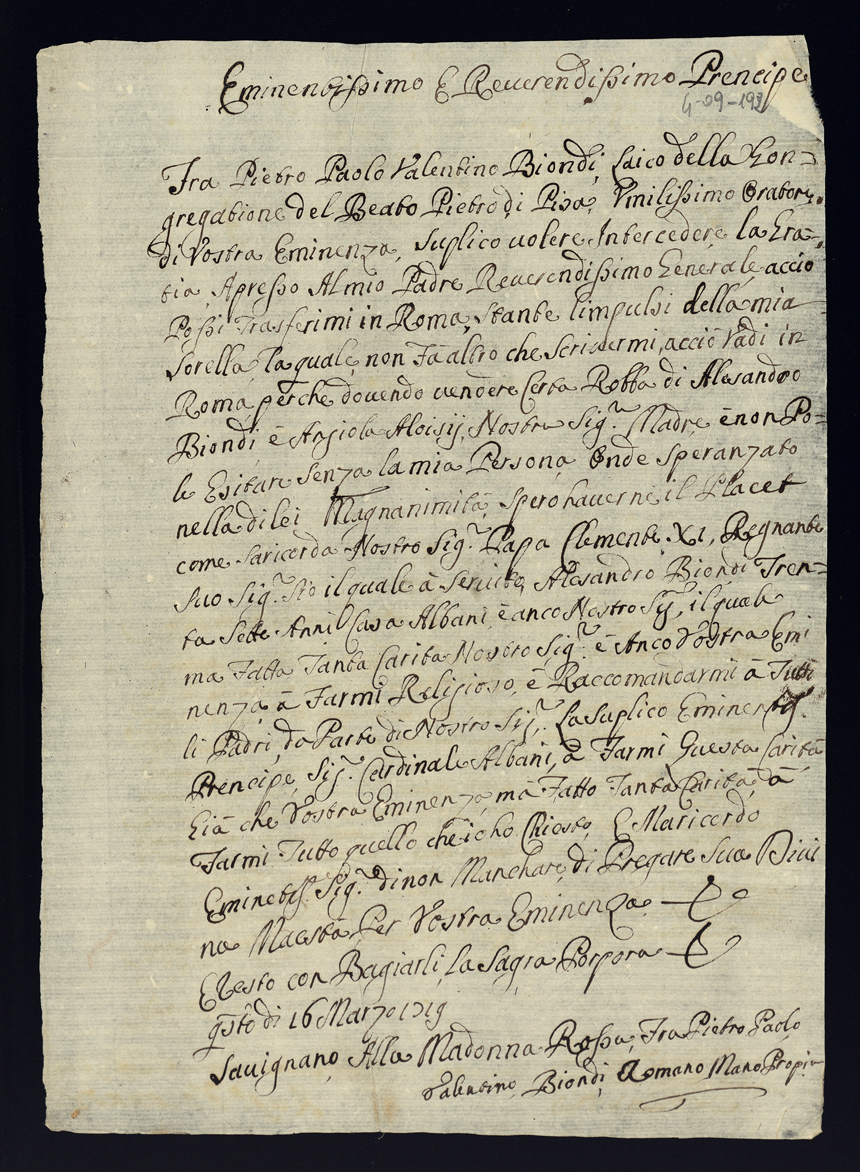 Eminentissimo E Reuerendissimo Prencipe
4-09-193
Fra Pietro Paolo Valentino Biondi, Laico della Con=
gregatione del Beato Pietro di Pisa, Vmilissimo Oratore,
di Vostra Eminenza, suplico uolere Intercedere la Gra=
tia, Apresso Al mio Padre Reuerendissimo Generale acciò
Possi Trasferimi in Roma, stante l'impulsi della mia
Sorella, la quale, non Fà altro che scriuermi, acciò Vadi in
Roma, perche douendo uendere Certa Robba di Alesandro
Biondi, è Angiola Aloisij, Nostra Sig.ra Madre, è non Po=
le Esitare Senza la mia Persona, Onde speranzato
nella di lei Magnanimità, spero hauerne il Placet
come Saricorda Nostro Sig.re Papa Clemente XI, Regnante
suo Sig.r Sio il quale à Seruito, Alesandro Biondi Tren=
ta Sette Anni Casa Albani, è anco Nostro Sig.re, il quale
ma Fatta Tanta Carità Nostro Sig.re è Anco Vostra Emi
nenza, à Farmi Religioso, è Raccomandarmi à Tutti
li Padri, da Parte di Nostro Sig.re. La suplico Eminentis.
Prencipe, Sig.r Cardinale Albani, à Farmi Questa Carità
Già che Vostra Eminenza, mà Fatto Tanta Carità, à
Farmi Tutto quello che io ho Chiesto, E Maricordo
Eminetis. Sig.re di non Manchare, di Pregare Sua Diui
na Maestà, Per Vostra Eminenza
E Resto con Bagiarli, la Sagra Porpora
q.sto di 16 Marzo 1719
Sauignano, Alla Madonna Rossa, Fra Pietro Paolo
Valentino Biondi, Romano Mano Propia